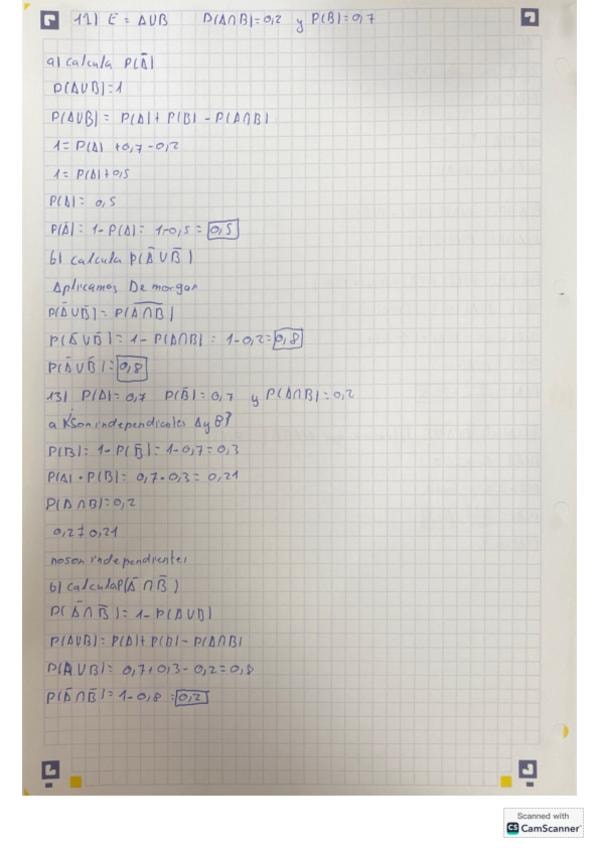 12) E = AUB P(A∩B)=0,2 y P(B)=0,7
a) calcula P(Ā)
P(AUB)=1
P(AUB)= P(A)+P(B)-P(A∩B)
1=P(A)+0,7-0,2
1=P(A)+0,5
P(A)=0,5
P(Ā)= 1-P(A)= 1-0,5=0,5
b) calcula P(Ā U B̄)
Aplicamos De morgan
P(Ā U B̄)= P(A̅∩̅B̅)
P(Ā U B̄)= 1- P(A∩B)= 1-0,2=0,8
P(Ā U B̄)=0,8
13) P(A)=0,7 P(B̄)=0,7 y P(A∩B)=0,2
a ¿Son independientes A y B?
P(B)= 1-P(B̄)= 1-0,7=0,3
P(A)·P(B)= 0,7·0,3= 0,21
P(A∩B)=0,2
0,2≠0,21
no son independientes
b) calcula P(Ā ∩ B̄)
P(Ā ∩ B̄)= 1-P(AUB)
P(AUB)= P(A)+P(B)-P(A∩B)
P(AUB)= 0,7+0,3-0,2=0,8
P(Ā∩B̄)= 1-0,8=0,2
Scanned with
CS CamScanner